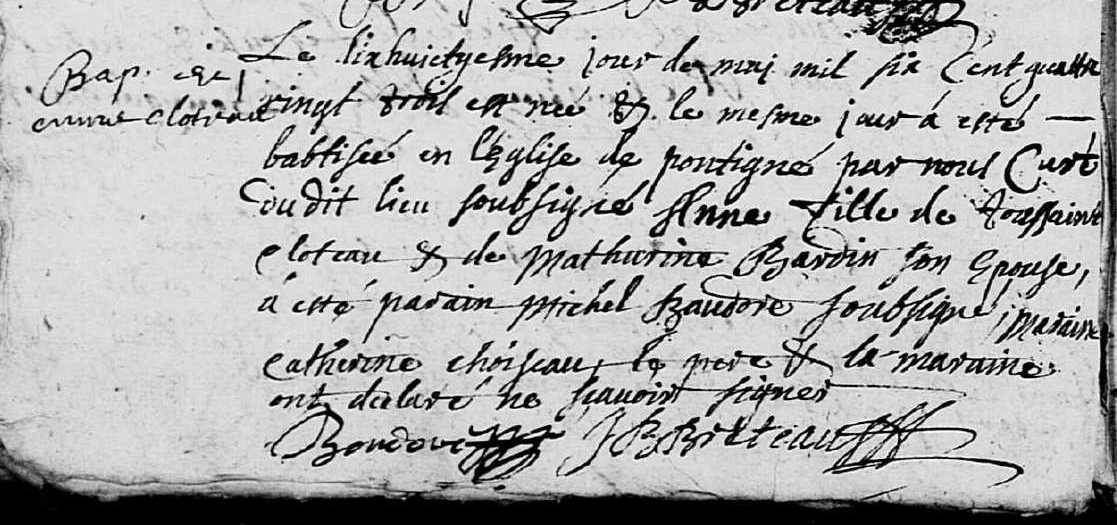 Bap. de
anne cloteau
Le dixhuictyesme jour de maj mil six Cent quattre
vingt trois est née & le mesme jour á esté
babtisée en l'Eglise de pontigné par nous Curé
dudit lieu soubsigné Anne fille de Toussaint
cloteau & de Mathurine Bardin son Epouse,
á esté parain Michel Baudore soubsigné, Maraine
Catherine choiseau, le pere & la maraine
ont declaré ne sçauoir signer
Baudore JBBreteau